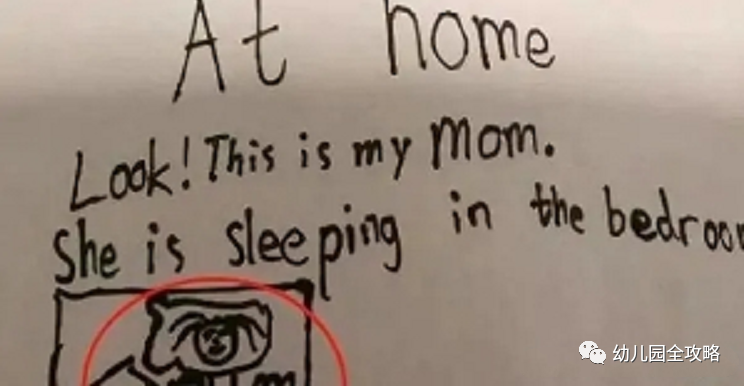 At home
Look! This is my mom.
She is sleeping in the bedroom
幼儿园全攻略